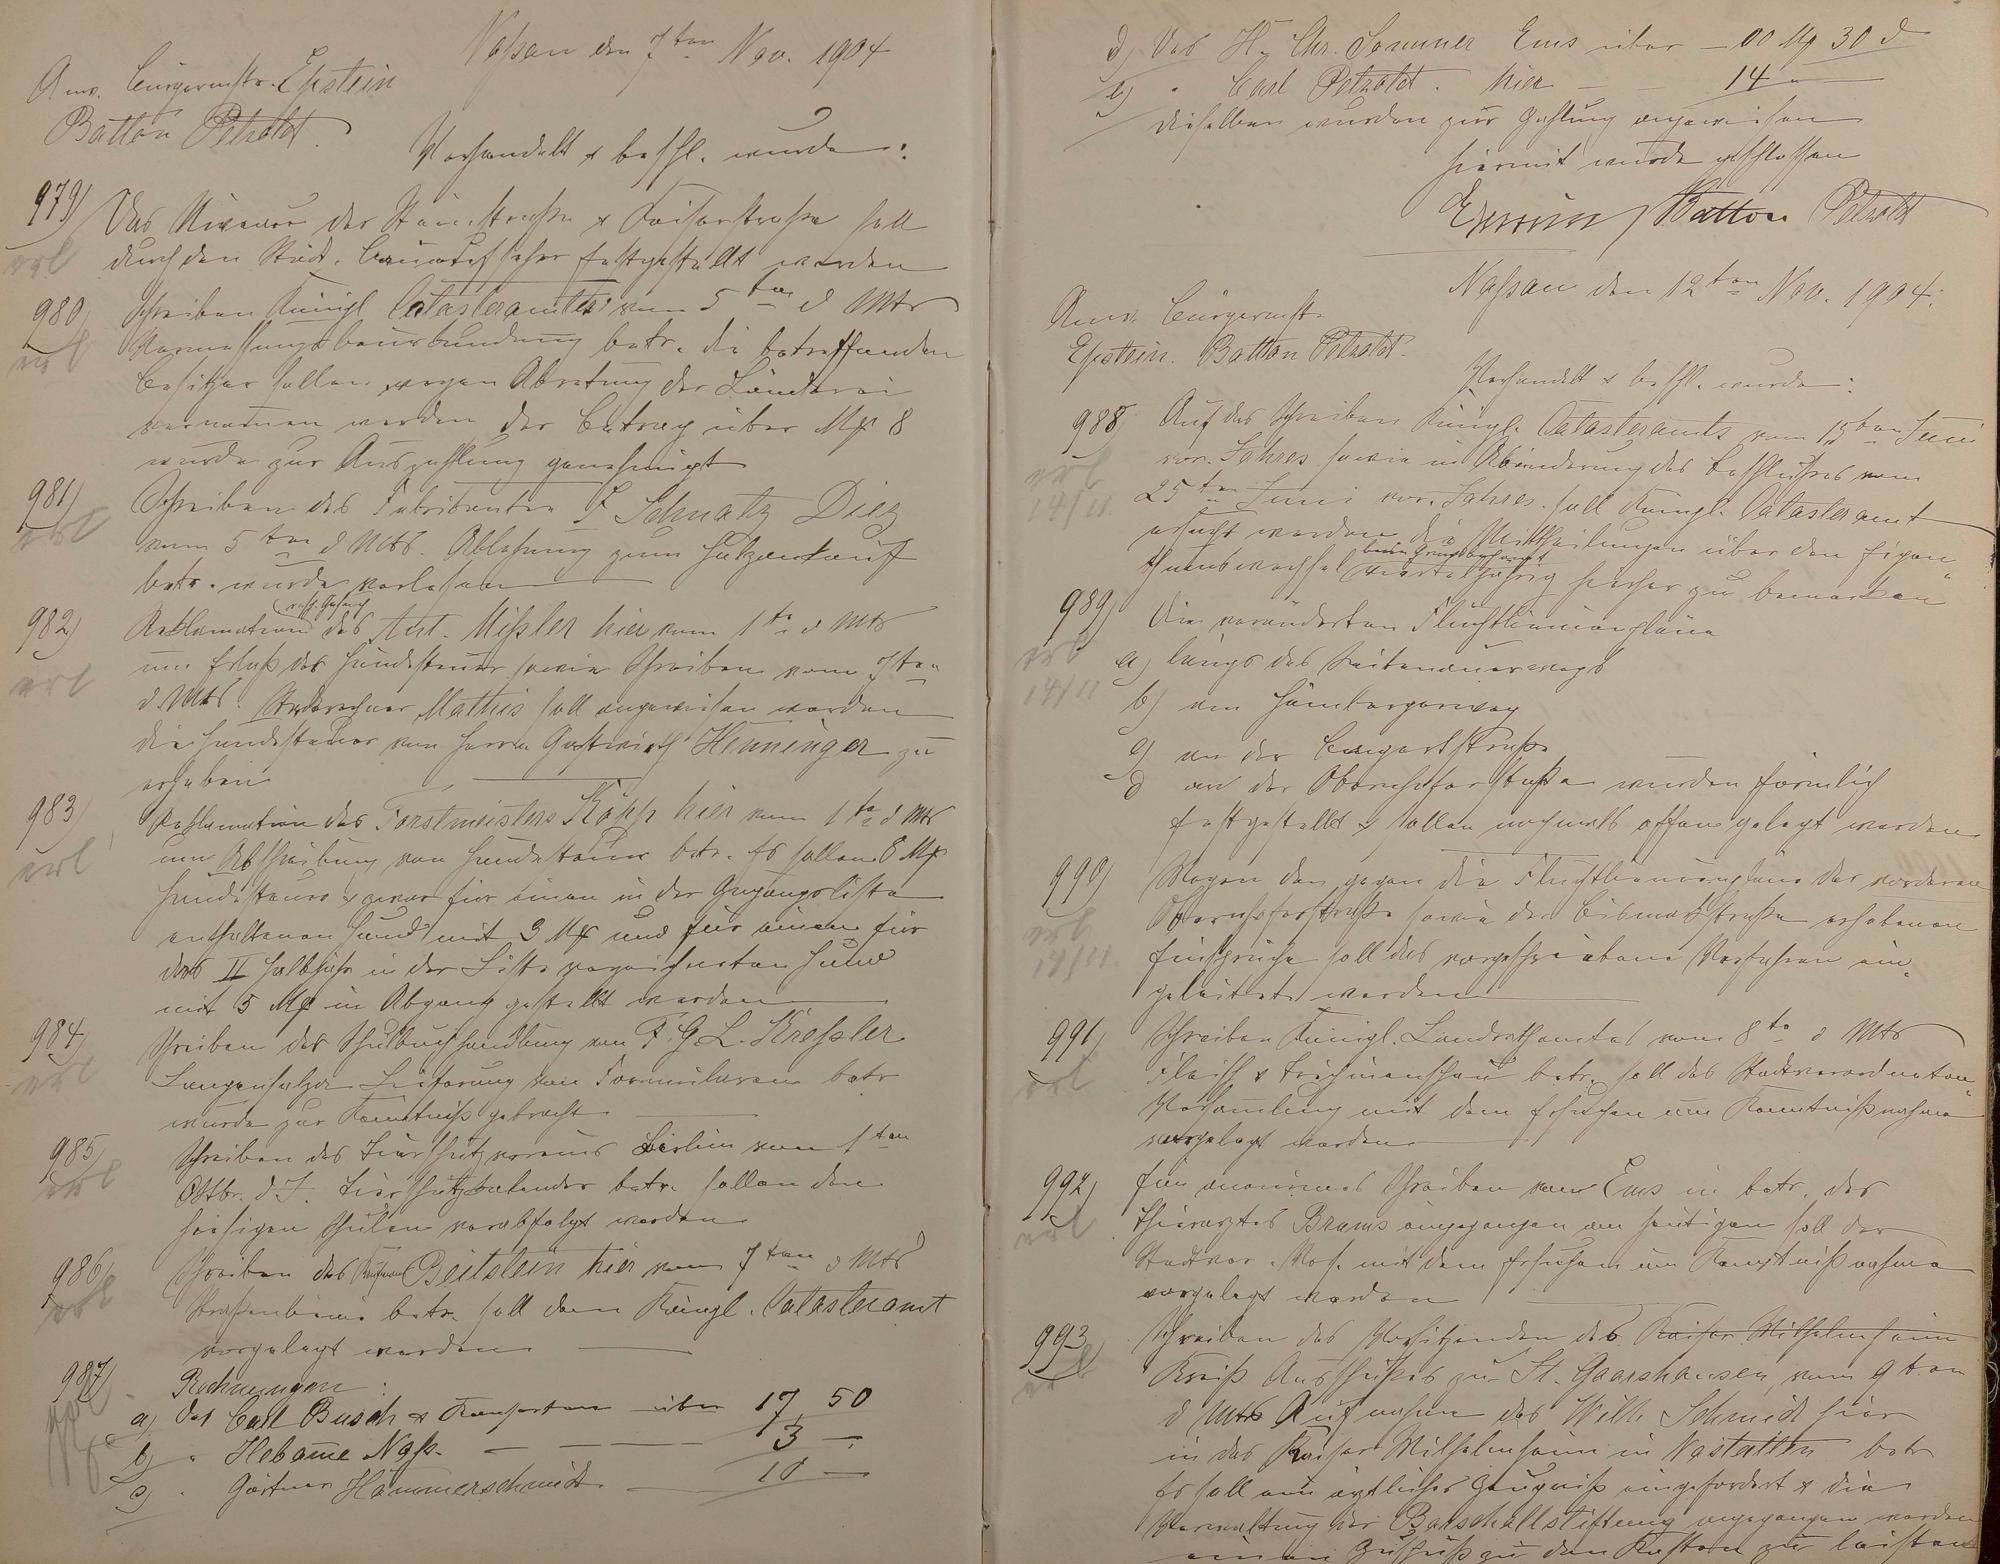 Naßau den 7ten Nov. 1904
Anw. Bürgermstr. Epstein
Batton Petzoldt.
Verhandelt & beschl. wurde:
979) Das Niveau der Steinstraße & Kaiserstraße soll
erl durch den Städt. Bauaufseher festgestellt werden
980) Schreiben Königl Catasteramtes vom 5ten d Mts
erl Vermessungsbeurkundung betr. die betreffenden
Besitzer sollen wegen Abretung der Länderei
vernomen werden der Betrag über Mk 8
wurde zur Auszahlung genehmigt
981) Schreiben des Fabrikanten F Schnatz Diez
erl vom 5ten d Mts. Ablehnung zum Holzankauf
betr. wurde verlesen
982) Reklamation resp. Gesuch des Ant. Mißler hier vom 1ten d Mts
erl um Erlaß der Hundesteuer sowie Schreiben vom 7ten
d. Mts. Stadtrechner Mathis soll angewiesen werden
die Hundesteuer von Herrn Gastwirth Henninger zu
erheben
983) Reklamation des Forstmeisters Köpp hier vom 1ten d Mts
erl um Abschreibung von Hundesteuer betr. Es sollen 8 Mk
Hundesteuer & zwar für einen in der Zugangsliste
enthaltenen Hund mit 3 Mk und für einen für
das II Halbjahr in der Liste verzeichneten Hund
mit 5 Mk in Abgang gestellt werden
984) Schreiben der Schulbuchhandlung von F. G. L. Kreßler
erl Langensalza Lieferung von Formularen betr
wurde zur Kenntniß gebracht
985) Schreiben des Tierschutzvereins Berlin vom 1ten
erl Oktbr. d J. Tierschutzkalender betr. sollen den
hiesigen Schulen verabfolgt werden
986) Schreiben des Kaufmann Beitstein hier vom 7ten d Mts
erl Straßenbau betr. soll dem Königl. Catasteramt
vorgelegt werden
987) Rechnungen:
a) des Carl Busch & Konsorten über 17 50
b) " Hebame Naß. — 3 —
c) " Gärtner Hammerschmidt — 10 —
d) Des H. Chr. Sommer Ems über — 00 Mk 30 d
e) " Carl Petzoldt. hier — 14 "
Dieselben wurden zur Zahlung angewiesen
Hiermit wurde geschlossen
Epstein Batton Petzoldt
Naßau den 12ten Nov. 1904.
Anw. Bürgermstr.
Epstein. Batton Petzoldt.
Verhandelt & beschl. wurde:
988 Auf das Schreiben Königl. Catasteramts vom 15ten Juni
erl vor. Jahres sowie in Abänderung des Beschlußes vom
14/11. 25ten Juni vor. Jahres soll Königl. Catasteramt
ersucht werden die Mittheilungen über den Eigen-
thumswechsel beim Grundbuchamt vierteljährig hierher zu bewirken
989) Die veränderten Fluchtlinienpläne
erl a) längs des Leitenauerwegs
14/11 b) am Hömbergerweg
c) an der Bongartstraße
d an der Obernhoferstraße wurden förmlich
festgestellt & sollen nochmals offen gelegt werden
990) Wegen den gegen die Fluchtlinienpläne der vorderen
erl Obernhoferstraße sowie der Bismarkstraße erhobenen
14/11. Einsprüche soll das vorgeschriebene Verfahren ein-
geleitet werden
991) Schreiben Königl. Landrathsamtes vom 8ten d Mts
erl Fleisch & Trichinenschau betr. soll der Stadtverordneten-
Versamlung mit dem Ersuchen um Kenntnißnahme
vorgelegt werden
992) Ein anonimes Schreiben von Ems in betr. des
erl Thierarztes Brams eingegangen am heutigen soll der
Stadtver. Vers. mit dem Ersuchen um Kenntnißnahme
vorgelegt werden
993) Schreiben des Vorsitzenden des Kaiser Wilhelmheim
erl Kreiß Ausschußes zu St. Goarshausen vom 9ten
d Mts Aufnahme des Wilh Schmidt hier
in das Kaiser Wilhelmheim in Nastätten betr
Es soll ein ärztliches Zeugniß eingefordert & die
Verwaltung der Barschallstiftung angegangen werden
einen Zuschuß zu den Kosten zu leisten